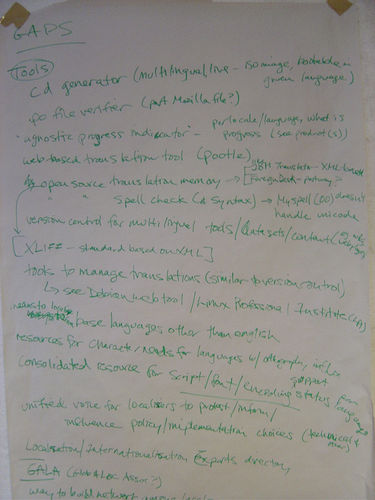 GAPS
Tools
Cd generator (multilingual, live - iso image,
given language)
po file verifier (part Mozilla file?)
"agnostic progress indicator" - per locale/language, what is
progress (see product(s))
web-based translation tool (pootle)
open source translation memory → XML based
" " spell check (& syntax) → Myspell (OO) doesn't
handle unicode
version control for multilingual tools/datasets/content
[XLIFF - standard based on XML]
tools to manage translations (similar to version control)
↳ see Debian web tool / Linux Professional Institute (LPI)
base languages other than english
resources for character needs for languages w/
consolidated resource for script/font/encoding support status for languages
unified voice for localisers to protest/inform/
influence policy/implementation choices (technical &
Localisation/Internationalisation Experts directory
GALA (Global Loc Assoc?)
way to build network among